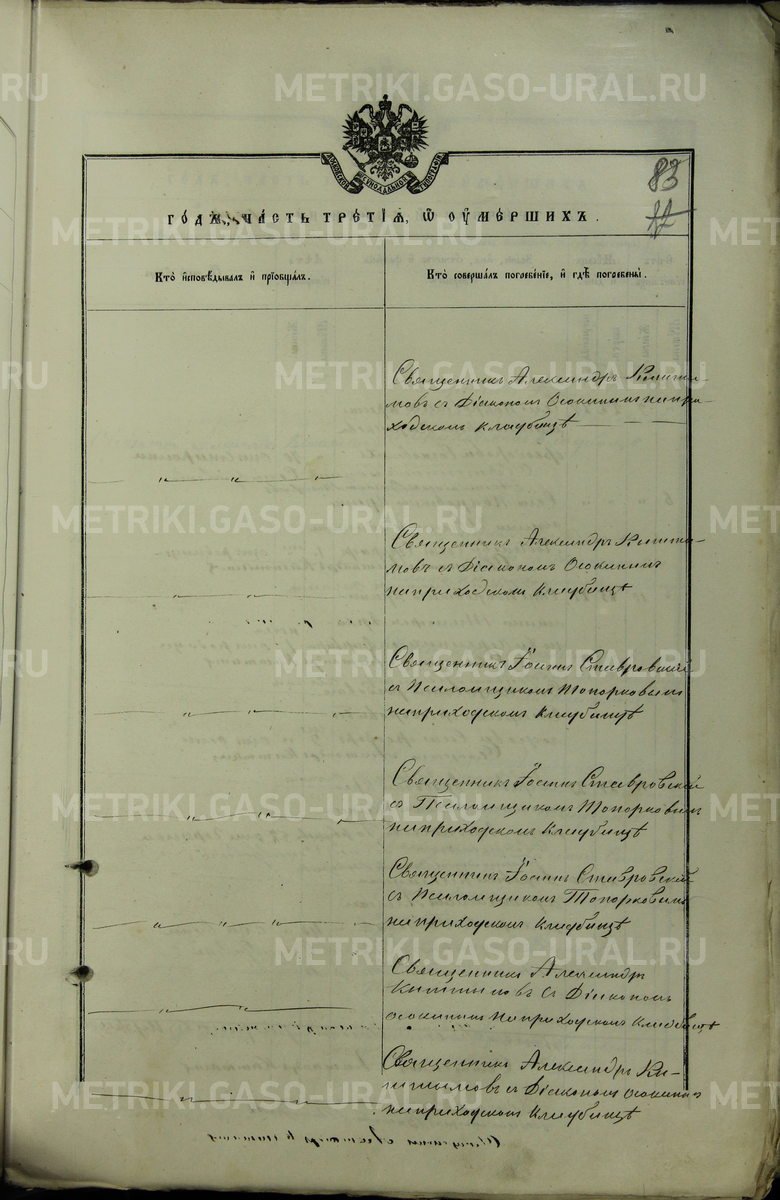 METRIKI.GASO-URAL.RU
МОСКОВСКОЙ СѴНОДАЛЬНОЙ ТИПОГРАФІИ
83
12
го́да, ча́сть тре́тїѧ, ѡ҆ ᲂу҆ме́ршихъ.
Кто̀ и҆сповѣ́дывалъ и҆ прїѡбща́лъ.
Кто̀ соверша́лъ погребе́нїе, и҆ гдѣ̀ погребены̀.
Священникъ Александръ Кишти-
мовъ съ Діакономъ Осокинымъ на при-
ходскомъ кладбищѣ
Священникъ Александръ Кишти-
мовъ съ Діакономъ Осокинымъ
на приходскомъ Кладбищѣ
Священникъ Іоаннъ Ставровскій
съ Псаломщикомъ Топорковымъ
на приходскомъ Кладбищѣ
Священникъ Іоаннъ Ставровскій
съ Псаломщикомъ Топорковымъ
на приходскомъ Кладбищѣ
Священникъ Іоаннъ Ставровскій
съ Псаломщикомъ Топорковымъ
на приходскомъ Кладбищѣ
Священникъ Александръ
Киштимовъ съ Діакономъ
Осокинымъ на приходскомъ Кладбищѣ
Священникъ Александръ Ки-
штимовъ съ Діакономъ Осокинымъ
на приходскомъ Кладбищѣ